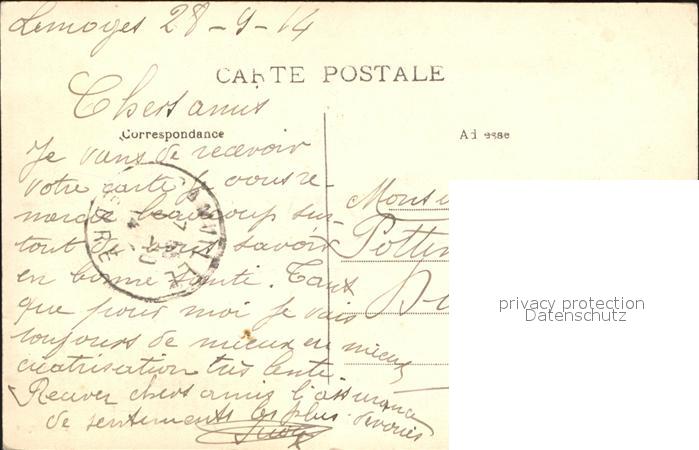 Limoges 28-9-14
CARTE POSTALE
Chers amis
Correspondance
Adresse
Je vans de recevoir
votre carte je vous re-
mercie beaucoup sur-
tout de vous savoir
en bonne santé. Tant
que pour moi je vais
toujours de mieux en mieux
cicatrisation très lente
Recever chers amis l'assurance
de sentiments les plus dévoués
Monsi
Pottin
privacy protection
Datenschutz